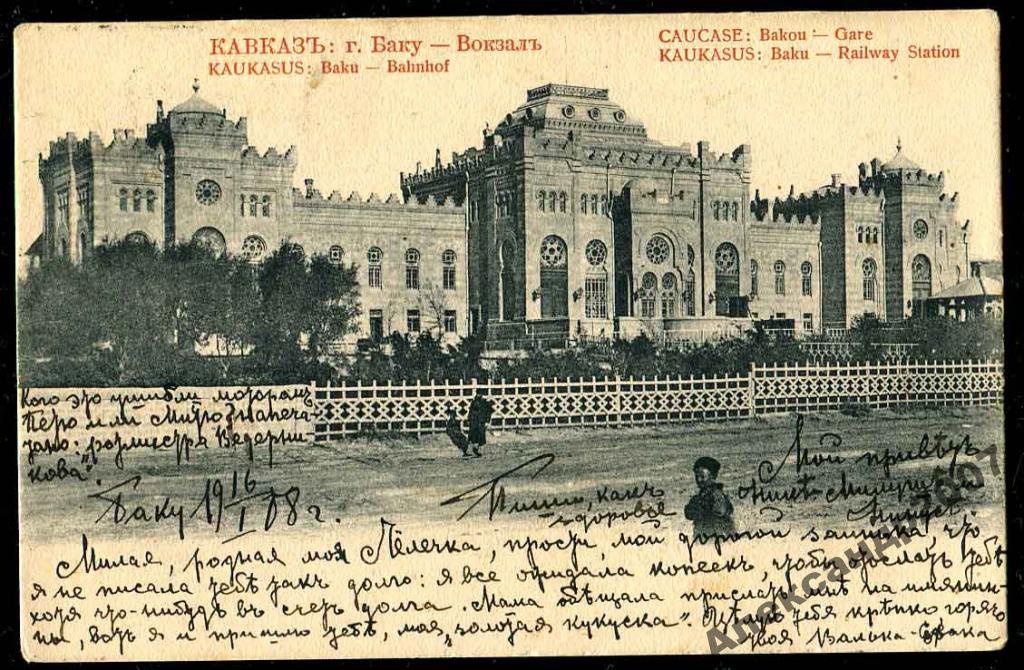 КАВКАЗЪ: г. Баку — Вокзалъ
KAUKASUS: Baku — Bahnhof
CAUCASE: Bakou — Gare
KAUKASUS: Baku — Railway Station
Кого это ушибли моторомъ
Петю или Митю? напеча-
тано: "ротмистра Ведерни-
кова".
Баку 19 16/I 08 г.
Пиши, какъ
здоровье
Мой привѣтъ
Милая, родная моя Лёлечка, прости, мой дорогой заинька, что
я не писала тебѣ такъ долго: я все ожидала копеекъ, чтобы послать тебѣ
хотя что-нибудь въ счетъ долга. Мама обѣщала прислать мнѣ на имянин-
ны, вотъ я и пришлю тебѣ, моя "золотая кукуска". Цѣлую тебя крѣпко горячо
твоя Валька
Александр 2007